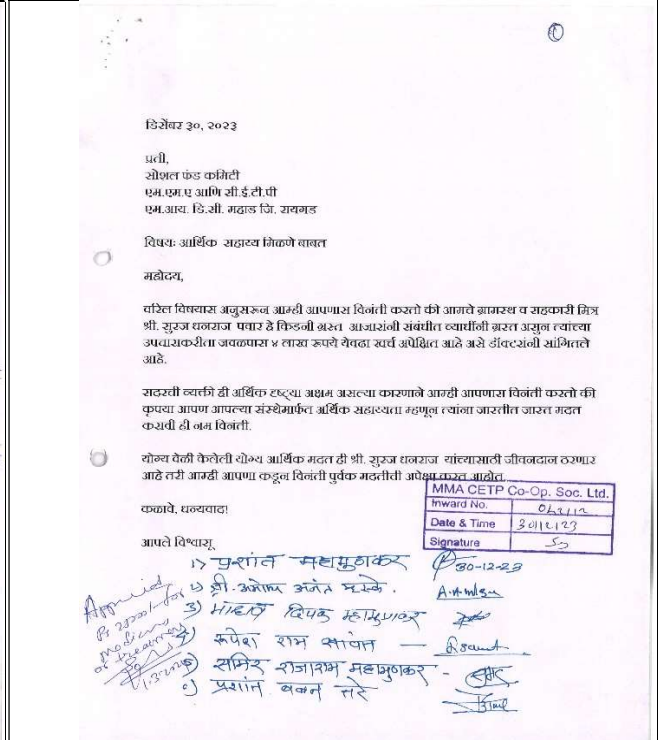 डिसेंबर ३०, २०२३
प्रती,
सोशल फंड कमिटी
एम.एम.ए आणि सी.ई.टी.पी
एम.आय. डि.सी. महाड जि. रायगड
विषयः आर्थिक सहाय्य मिळणे बाबत
महोदय,
वरिल विषयास अनुसरून आम्ही आपणास विनंती करतो की आमचे ग्रामस्थ व सहकारी मित्र
श्री. सुरज धनराज पवार हे किडनी ग्रस्त आजारांनी संबंधीत व्याधींनी ग्रस्त असुन त्यांच्या
उपचासकरीता जवळपास ४ लाख रूपये येवढा खर्च अपेक्षित आहे असे डॉक्टरांनी सांगितले
आहे.
सदरची व्यक्ती ही आर्थिक दृष्ट्या अक्षम असल्या कारणाने आम्ही आपणास विनंती करतो की
कृपया आपण आपल्या संस्थेमार्फत आर्थिक सहाय्यता म्हणून त्यांना जास्तीत जास्त मदत
करावी ही नम विनंती.
योग्य वेळी केलेली योग्य आर्थिक मदत ही श्री. सुरज धनराज यांच्यासाठी जीवनदान ठरणार
आहे तरी आम्ही आपणा कडून विनंती पुर्वक मदतीची अपेक्षा करत आहोत.
कळावे, धन्यवाद!
MMA CETP Co-Op. Soc. Ltd.
Inward No.
Date & Time 30/12/23
Signature
आपले विश्वासू
१) प्रशांत महामुणकर 30-12-23
श्री. अनंत म्हस्के.
3) दिपक महामुणकर
रुपेश राम सावंत - RSawant
समिर राजाराम महामुणकर -
प्रशांत बबन तटे
Approved
Rs for
medicine
of treatment